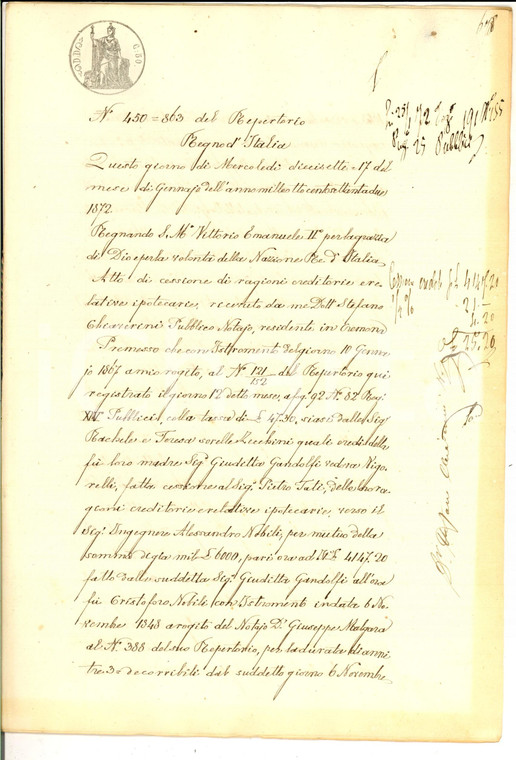 N.° 450=863 del Repertorio
Regno d'Italia
Questo giorno di Mercoledì diecisette 17 del
mese di Gennajo dell'anno mille otto cento settanta due
1872
Regnando S. M. Vittorio Emanuele II° per la grazia
di Dio e per la volontà della Nazione Re d'Italia
Atto di cessione di ragioni creditorie e re=
lative ipotecarie, ricevuto da me Dott. Stefano
Pubblico Notajo, residente in Cremona
Premesso che con Istromento del giorno 10 Genna=
jo 1867 a mio rogito, al N.° 121/152 del Repertorio qui
registrato il giorno 12 detto mese, a fg. 92 N.° 82 Reg.
Pubblici, colla tassa di £ 47.30, siasi dalle Sig.e
Rachele e Teresa sorelle quale eredi della
fu loro madre Sig.a Giuditta Gandolfi vedova Vigo=
relli, fatta cessione al Sig. Pietro Tali, delle loro ra=
gioni creditorie e relative ipotecarie, verso il
Sig. Ingegnere Alessandro Nobili, per mutuo della
somma di già mil. £ 6000, pari ora ad It. £ 4147.20
fatto dalla suddetta Sig.a Giuditta Gandolfi all'ora
fu Cristoforo Nobili con Istromento in data 6 No=
vembre 1848 a rogito del Notajo D.r Giuseppe Malgara
al N.° 388 del suo Repertorio, per la durata di anni
tre 3 decorribili dal suddetto giorno 6 Novembre
191 N.° 155
Pubblici
4147.20
25.20